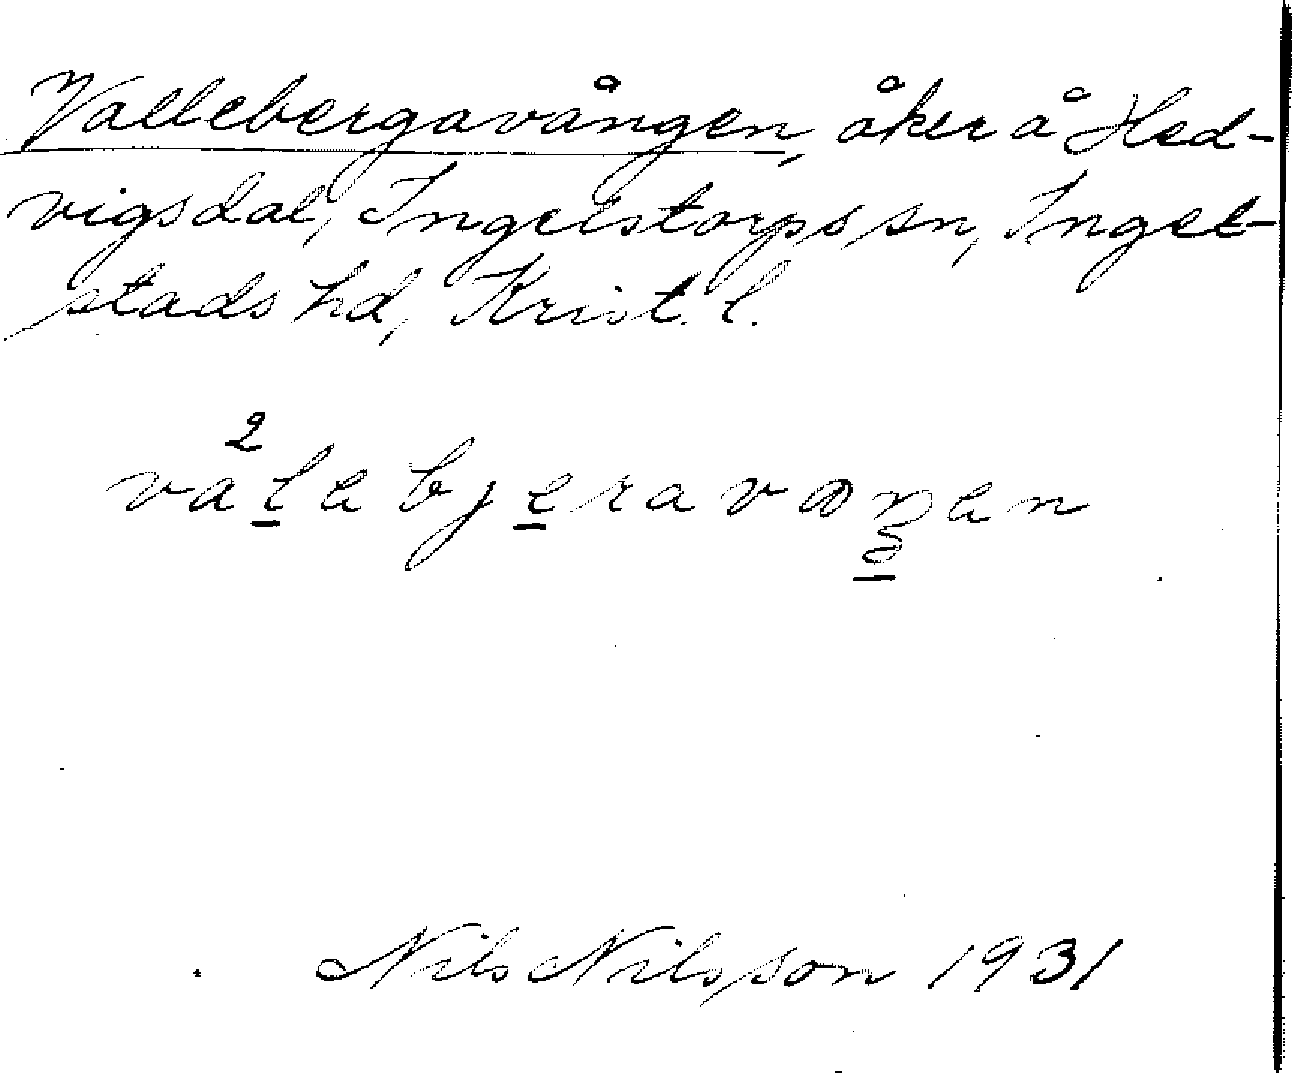 Vallebergavången, åker å Hed-
vigsdal, Ingelstorps sn, Ingel-
stads hd, Krist. l.
2
valebjeravɷŋen
Nils Nilsson 1931